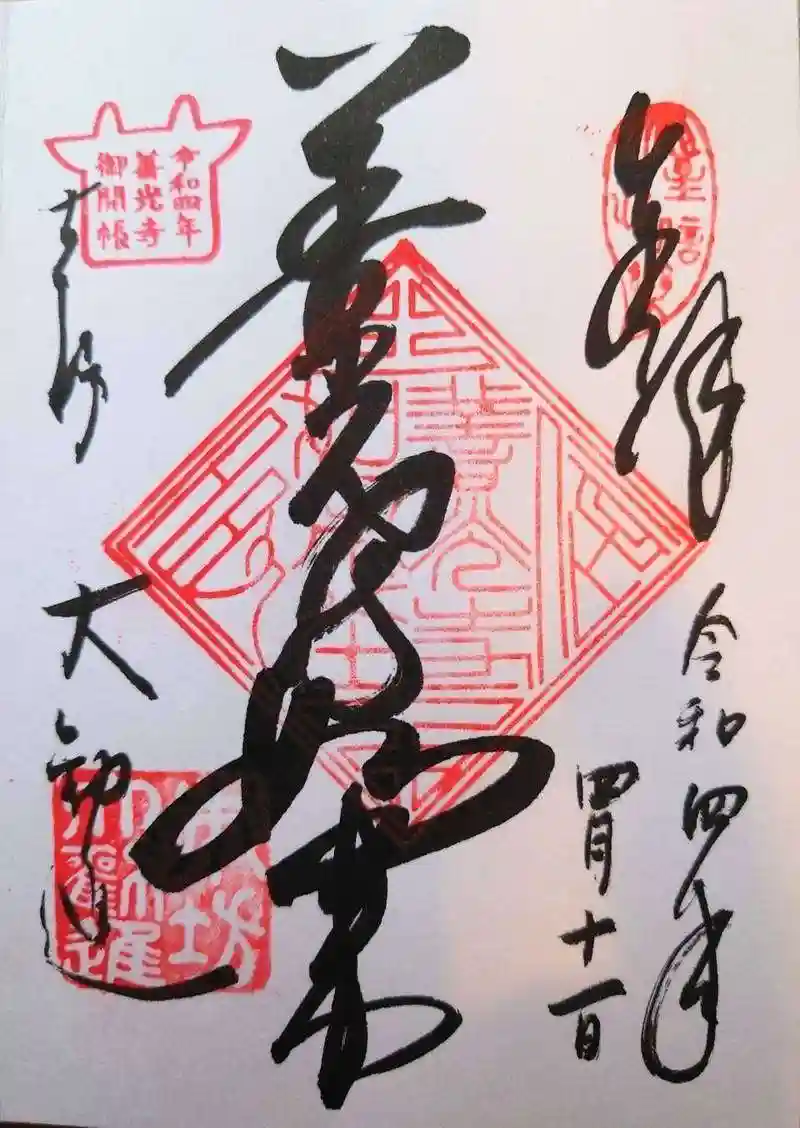 奉拝
令和四年
四月十一日
善光寺如来
令和四年
善光寺
御開帳
本坊
大勧進